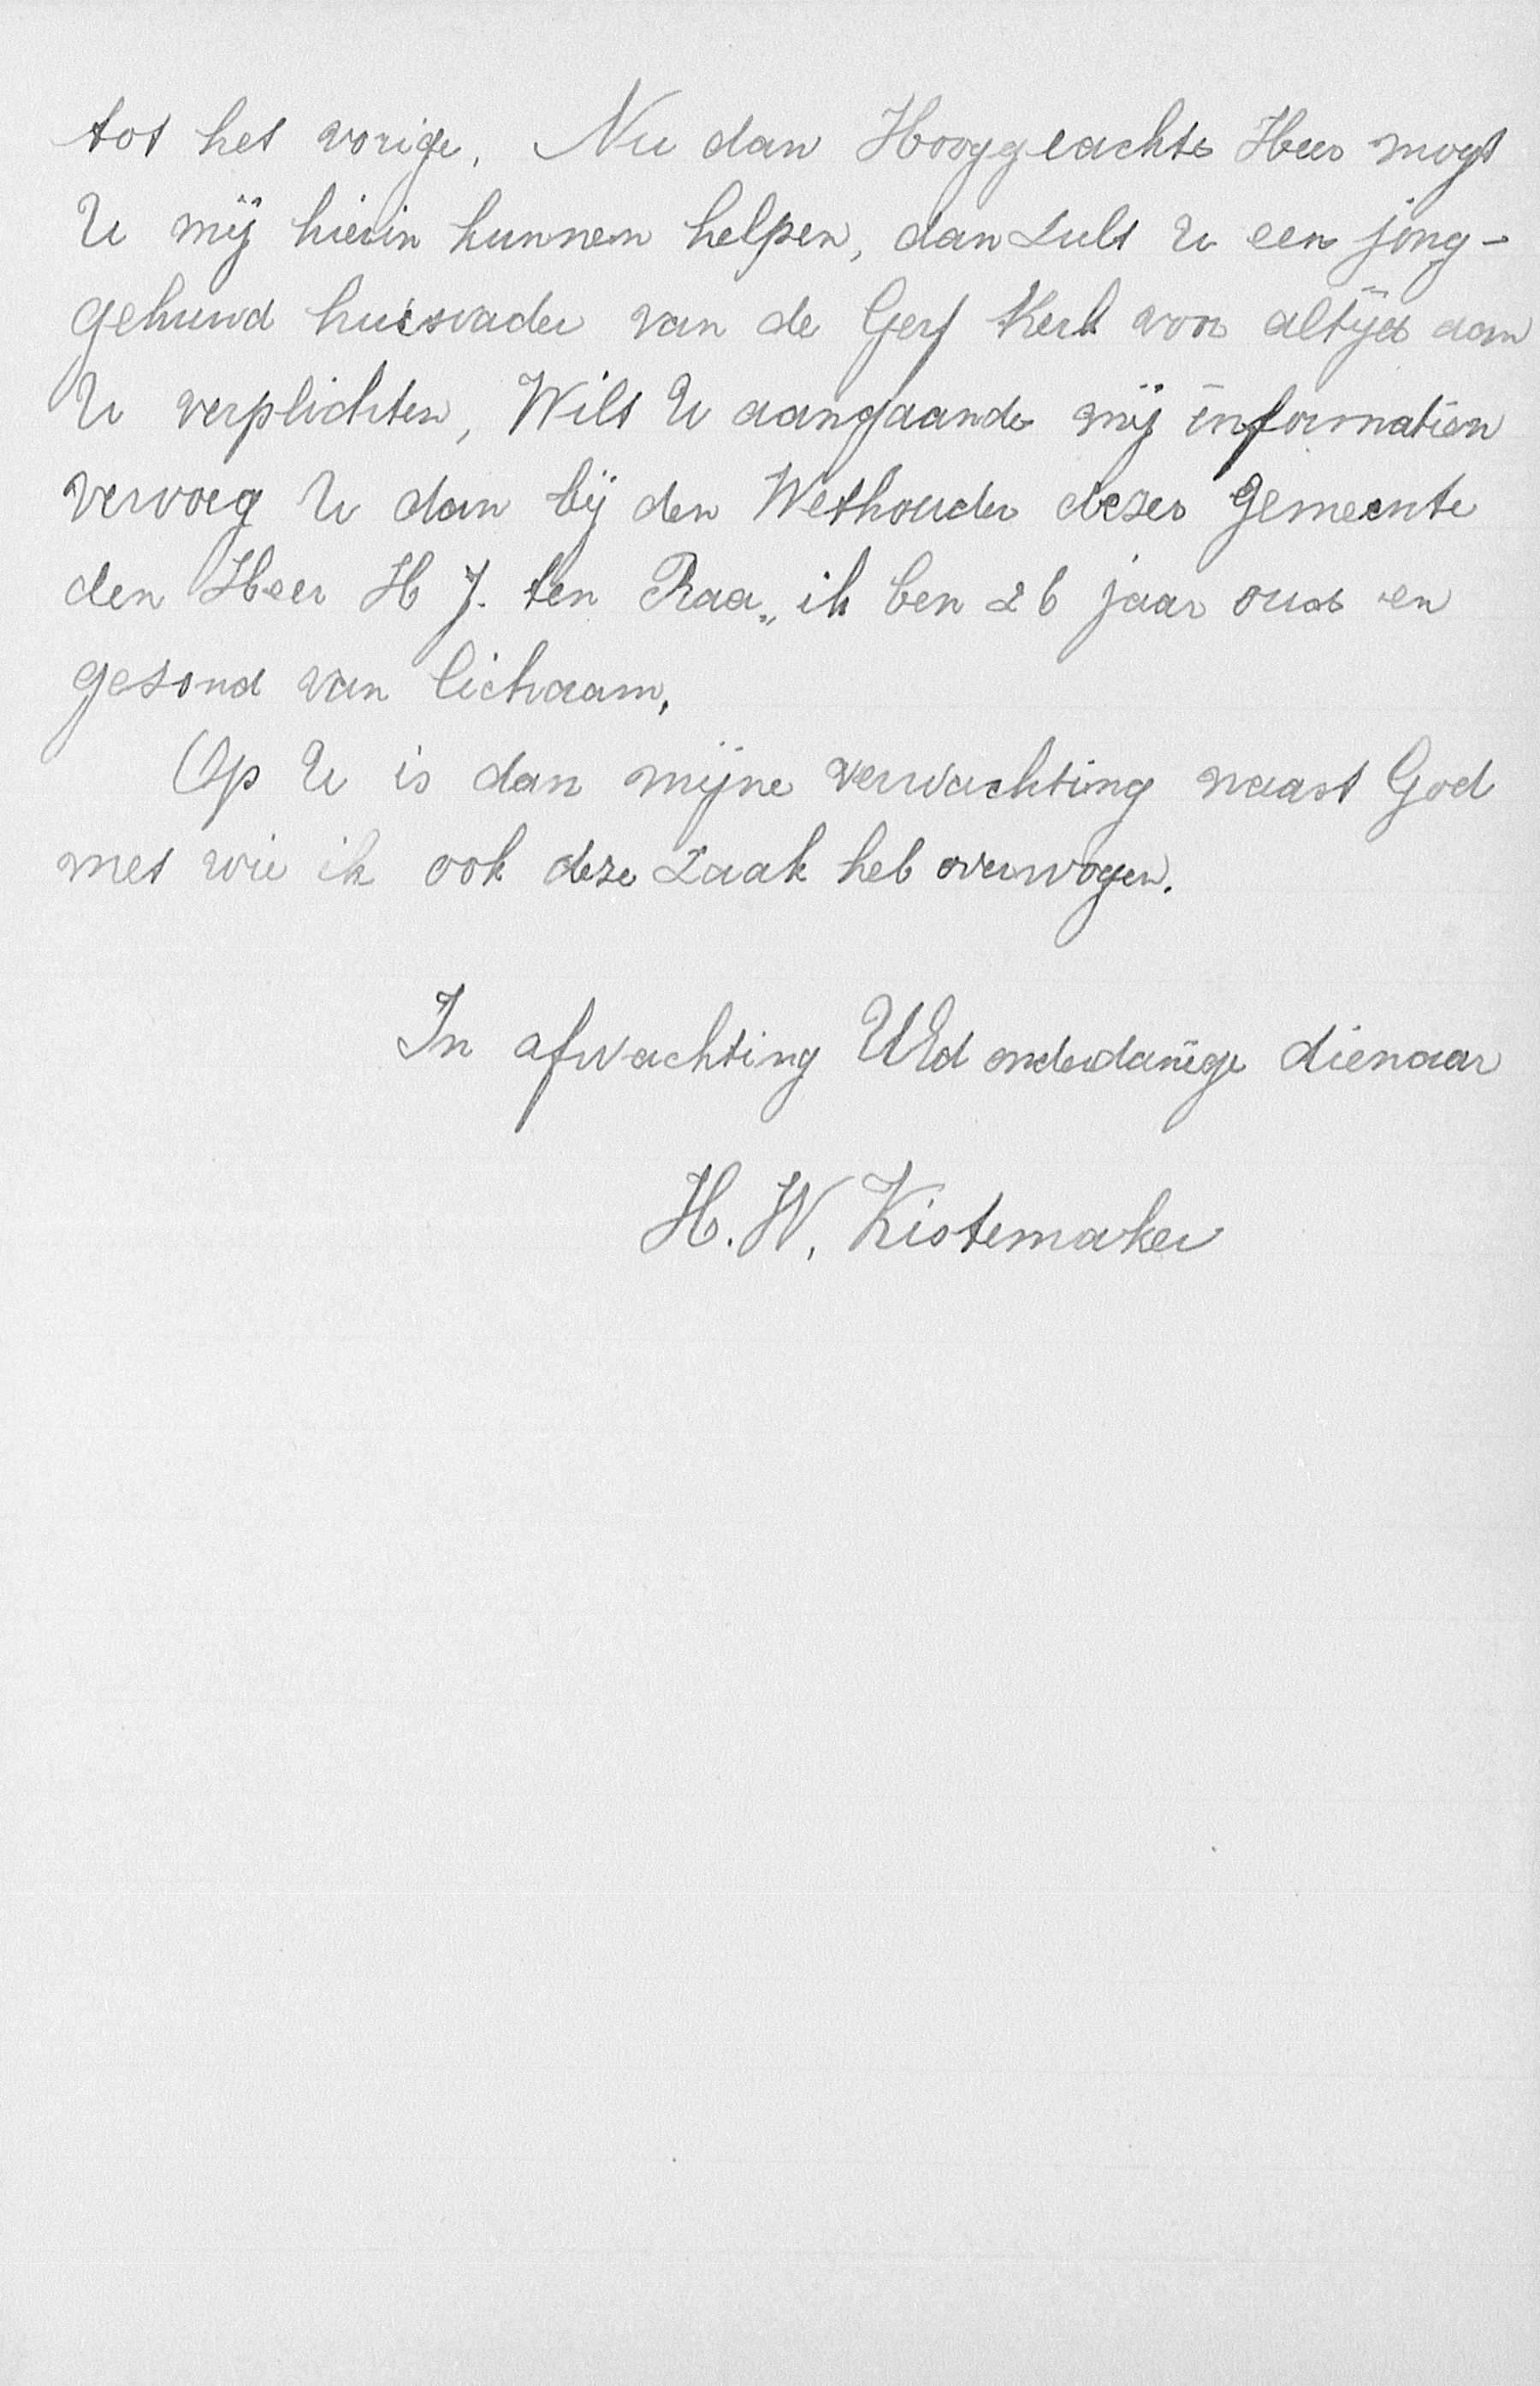 tot het vorige. Nu dan Hooggeachte Heer mogt
U mij hierin kunnen helpen, dan zult U een jong-
gehuwd huisvader van de Gerf Kerk voor altijd aan
U verplichten, Wilt U aangaande mij informatiën
vervoeg U dan bij den Wethouder dezer Gemeente
den Heer H J. ten Raa„ ik ben 26 jaar oud en
gezond van lichaam,
Op U is dan mijne verwachting naast God
met wie ik ook deze zaak heb overwogen.
In afwachting UEd onderdanige dienaar
H. W. Kistemaker